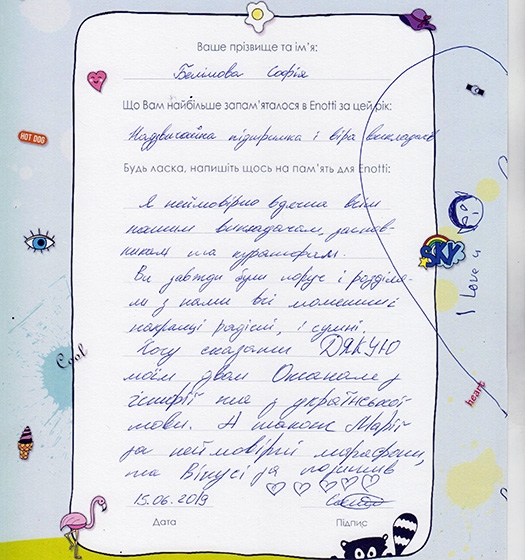 Ваше прізвище та ім'я:
Белімова Софія
Що Вам найбільше запам'яталося в Enotti за цей рік:
Надзвичайна підтримка і віра викладачів
Будь ласка, напишіть щось на пам'ять для Enotti:
Я неймовірно вдячна всім
нашим викладачам, заснов-
никам та кураторам.
Ви завжди були поруч і розділя-
ли з нами всі моменти:
найкращі радісні, і сумні.
Хочу сказати ДЯКУЮ
моїм двом Оксанам з
історії та з української
мови. А також Марії
за неймовірні марафони,
та Вікусі за
15.06.2019
Дата
Підпис
HOT DOG
SKY
I Love u
Cool
heart